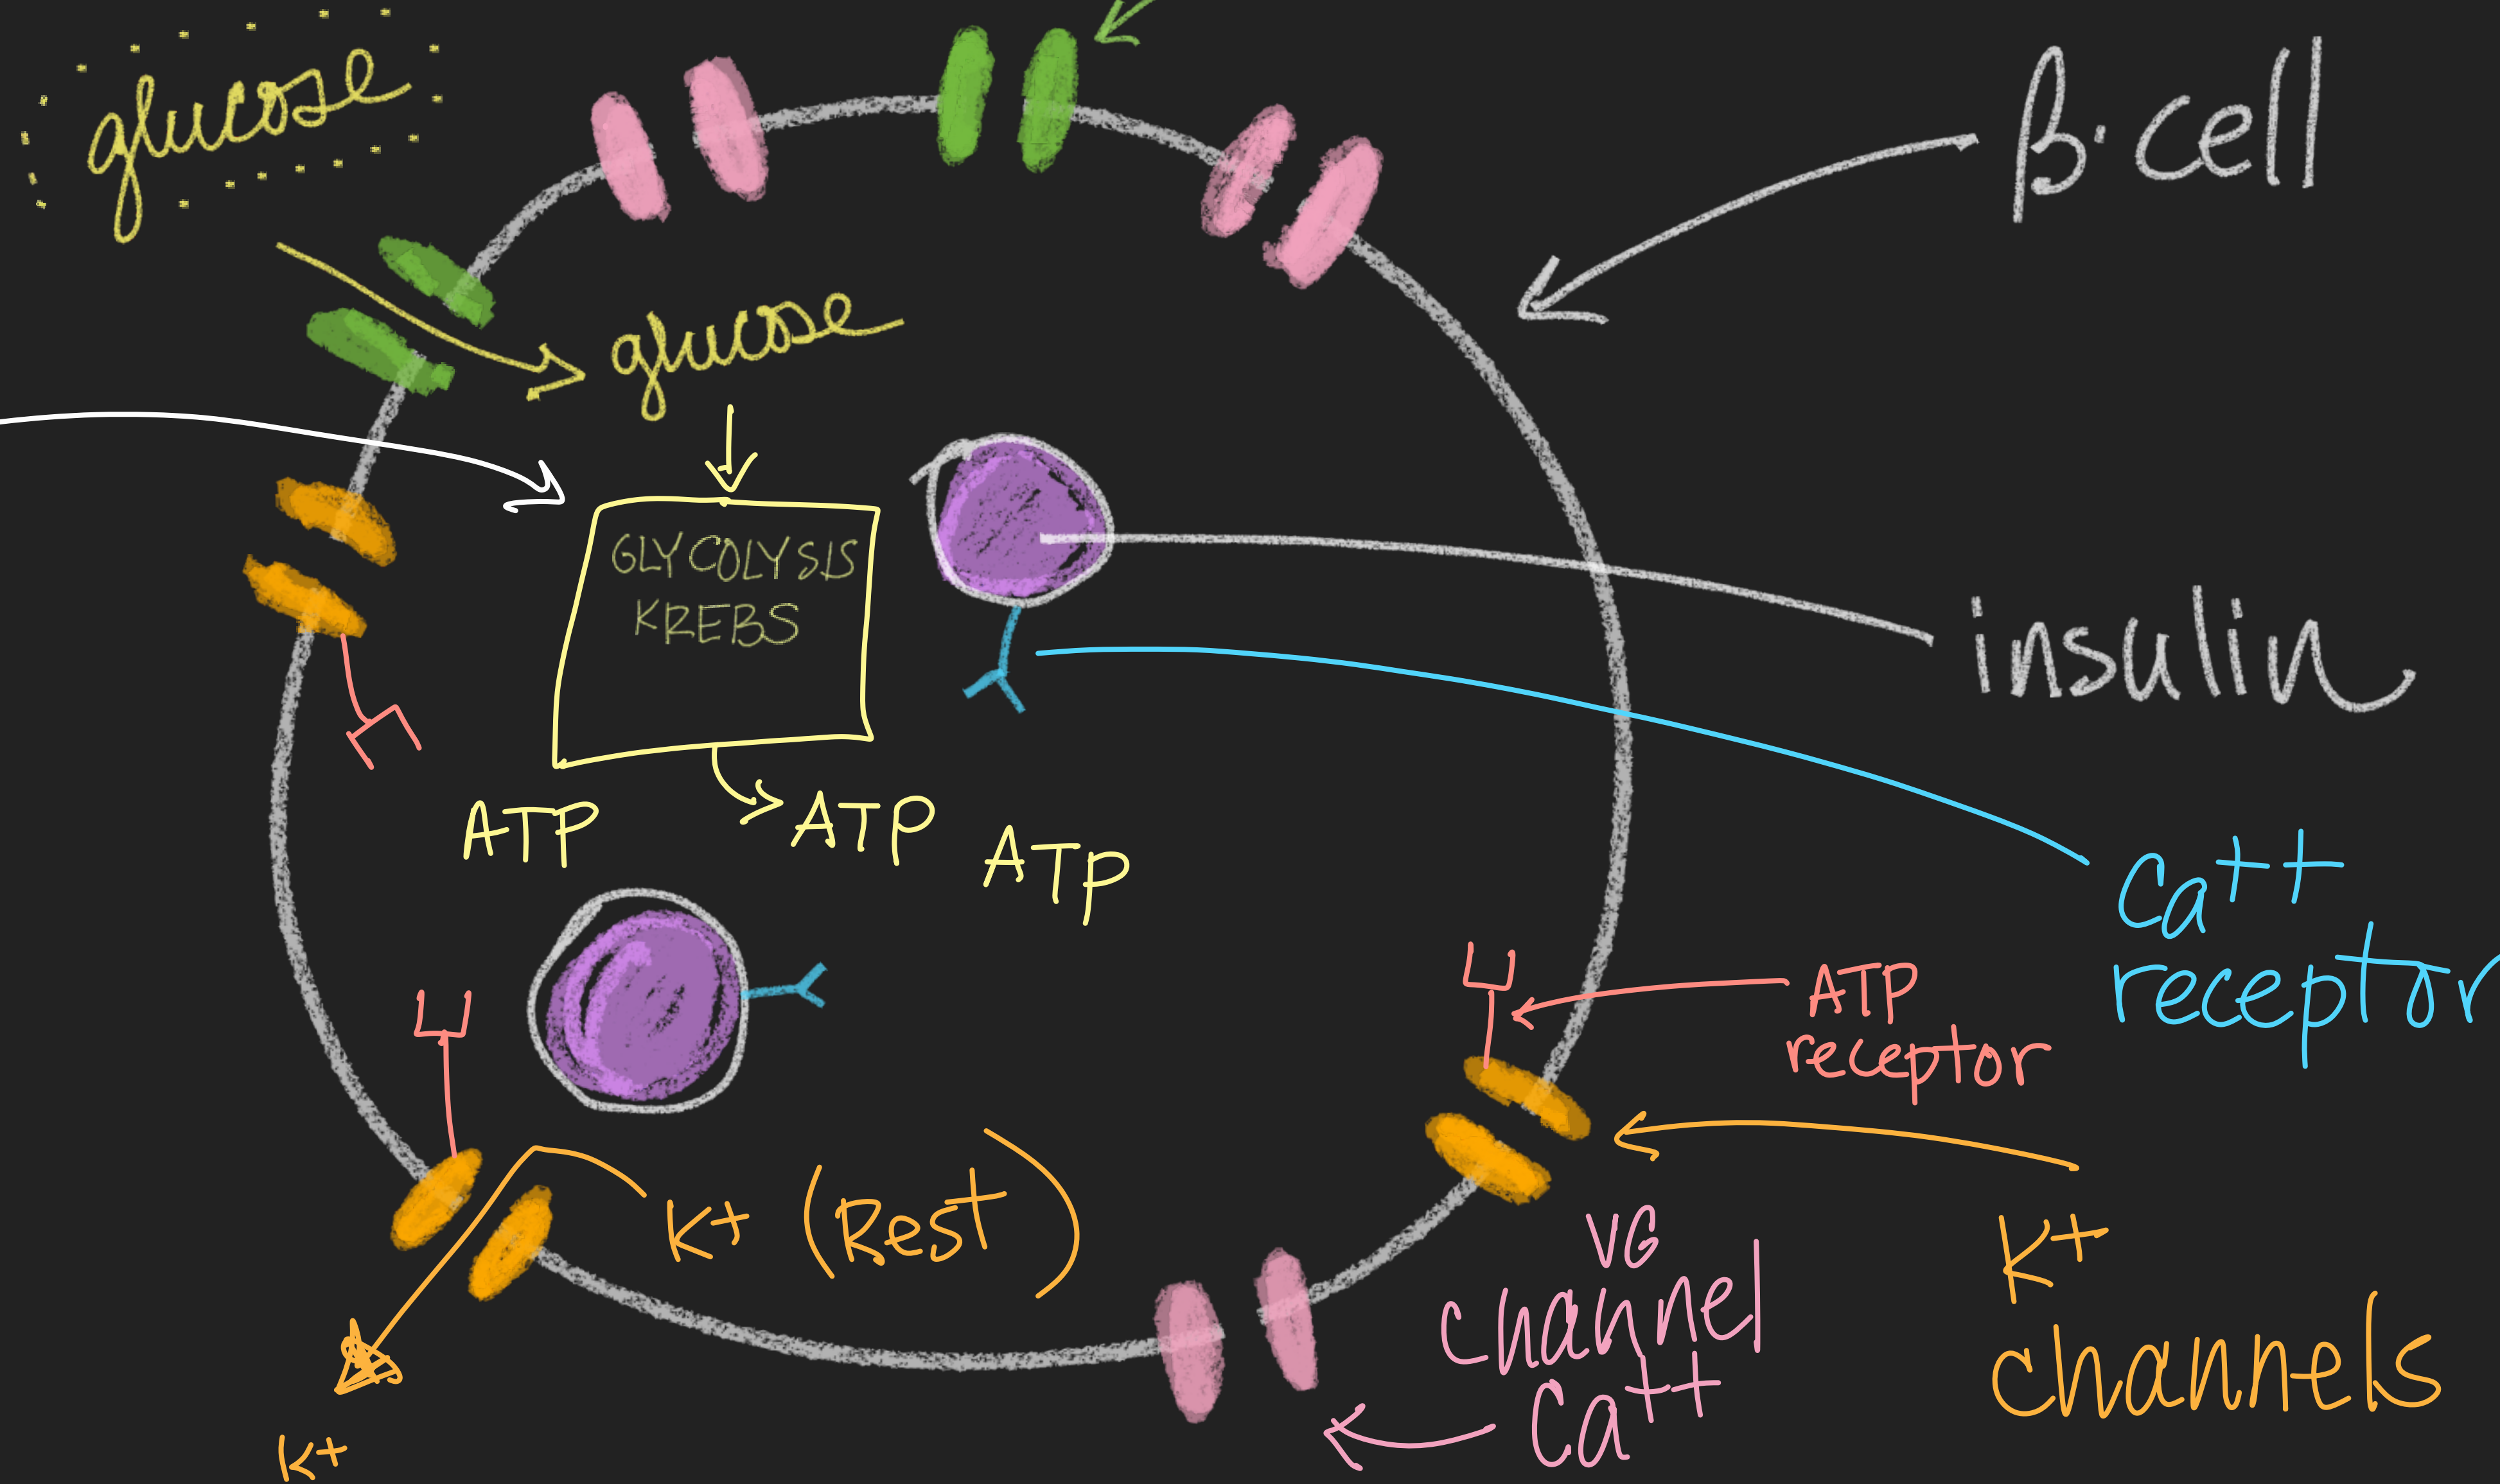 glucose
β-cell
glucose
GLYCOLYSIS
KREBS
insulin
ATP
ATP
ATP
Ca++
receptor
ATP
receptor
K+ (Rest)
K+
channels
VG
channel
Ca++
K+